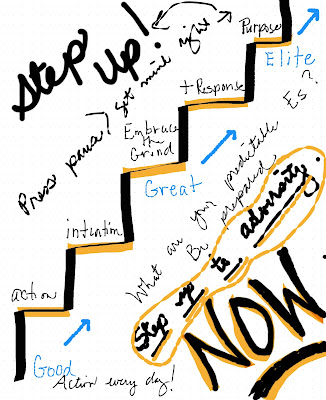 Step Up!
Press pause! Get mind right
Purpose
Elite
+ Response
Embrace
the
Grind
Great
intention
action
Good
Action every day!
What are your predictable Es?
Be prepared,
Step up to adversity.
NOW